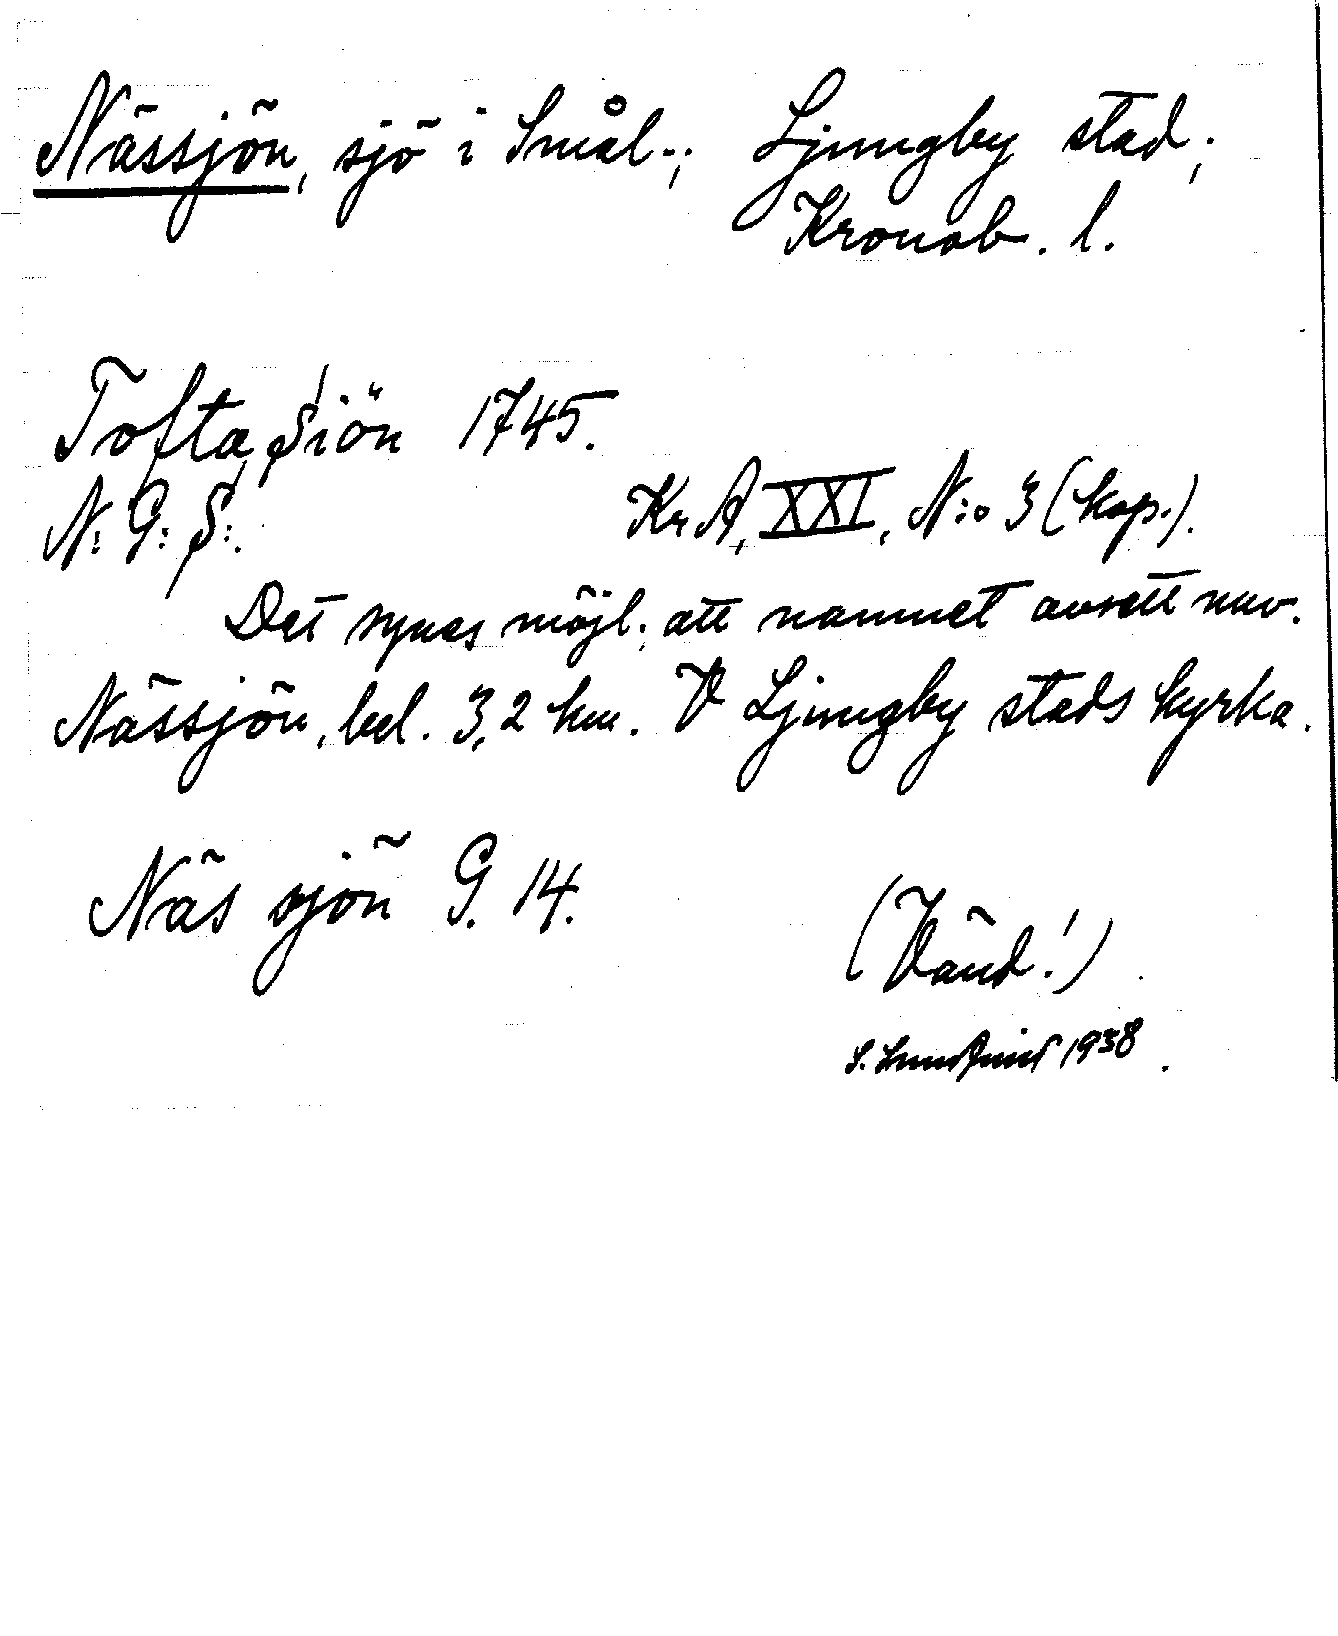 Nässjön, sjö i Smål.; Ljungby stad;
Kronob. l.
Tofta Siön 1745.
N: G: S:. Kr A, XXI, N:o 3 (kop.).
Det synes möjl. att namnet avsett nuv.
Nässjön, bel. 3,2 km. V Ljungby stads kyrka.
Näs sjön G. 14.
(Vänd!)
S. Lundqvist 1938.